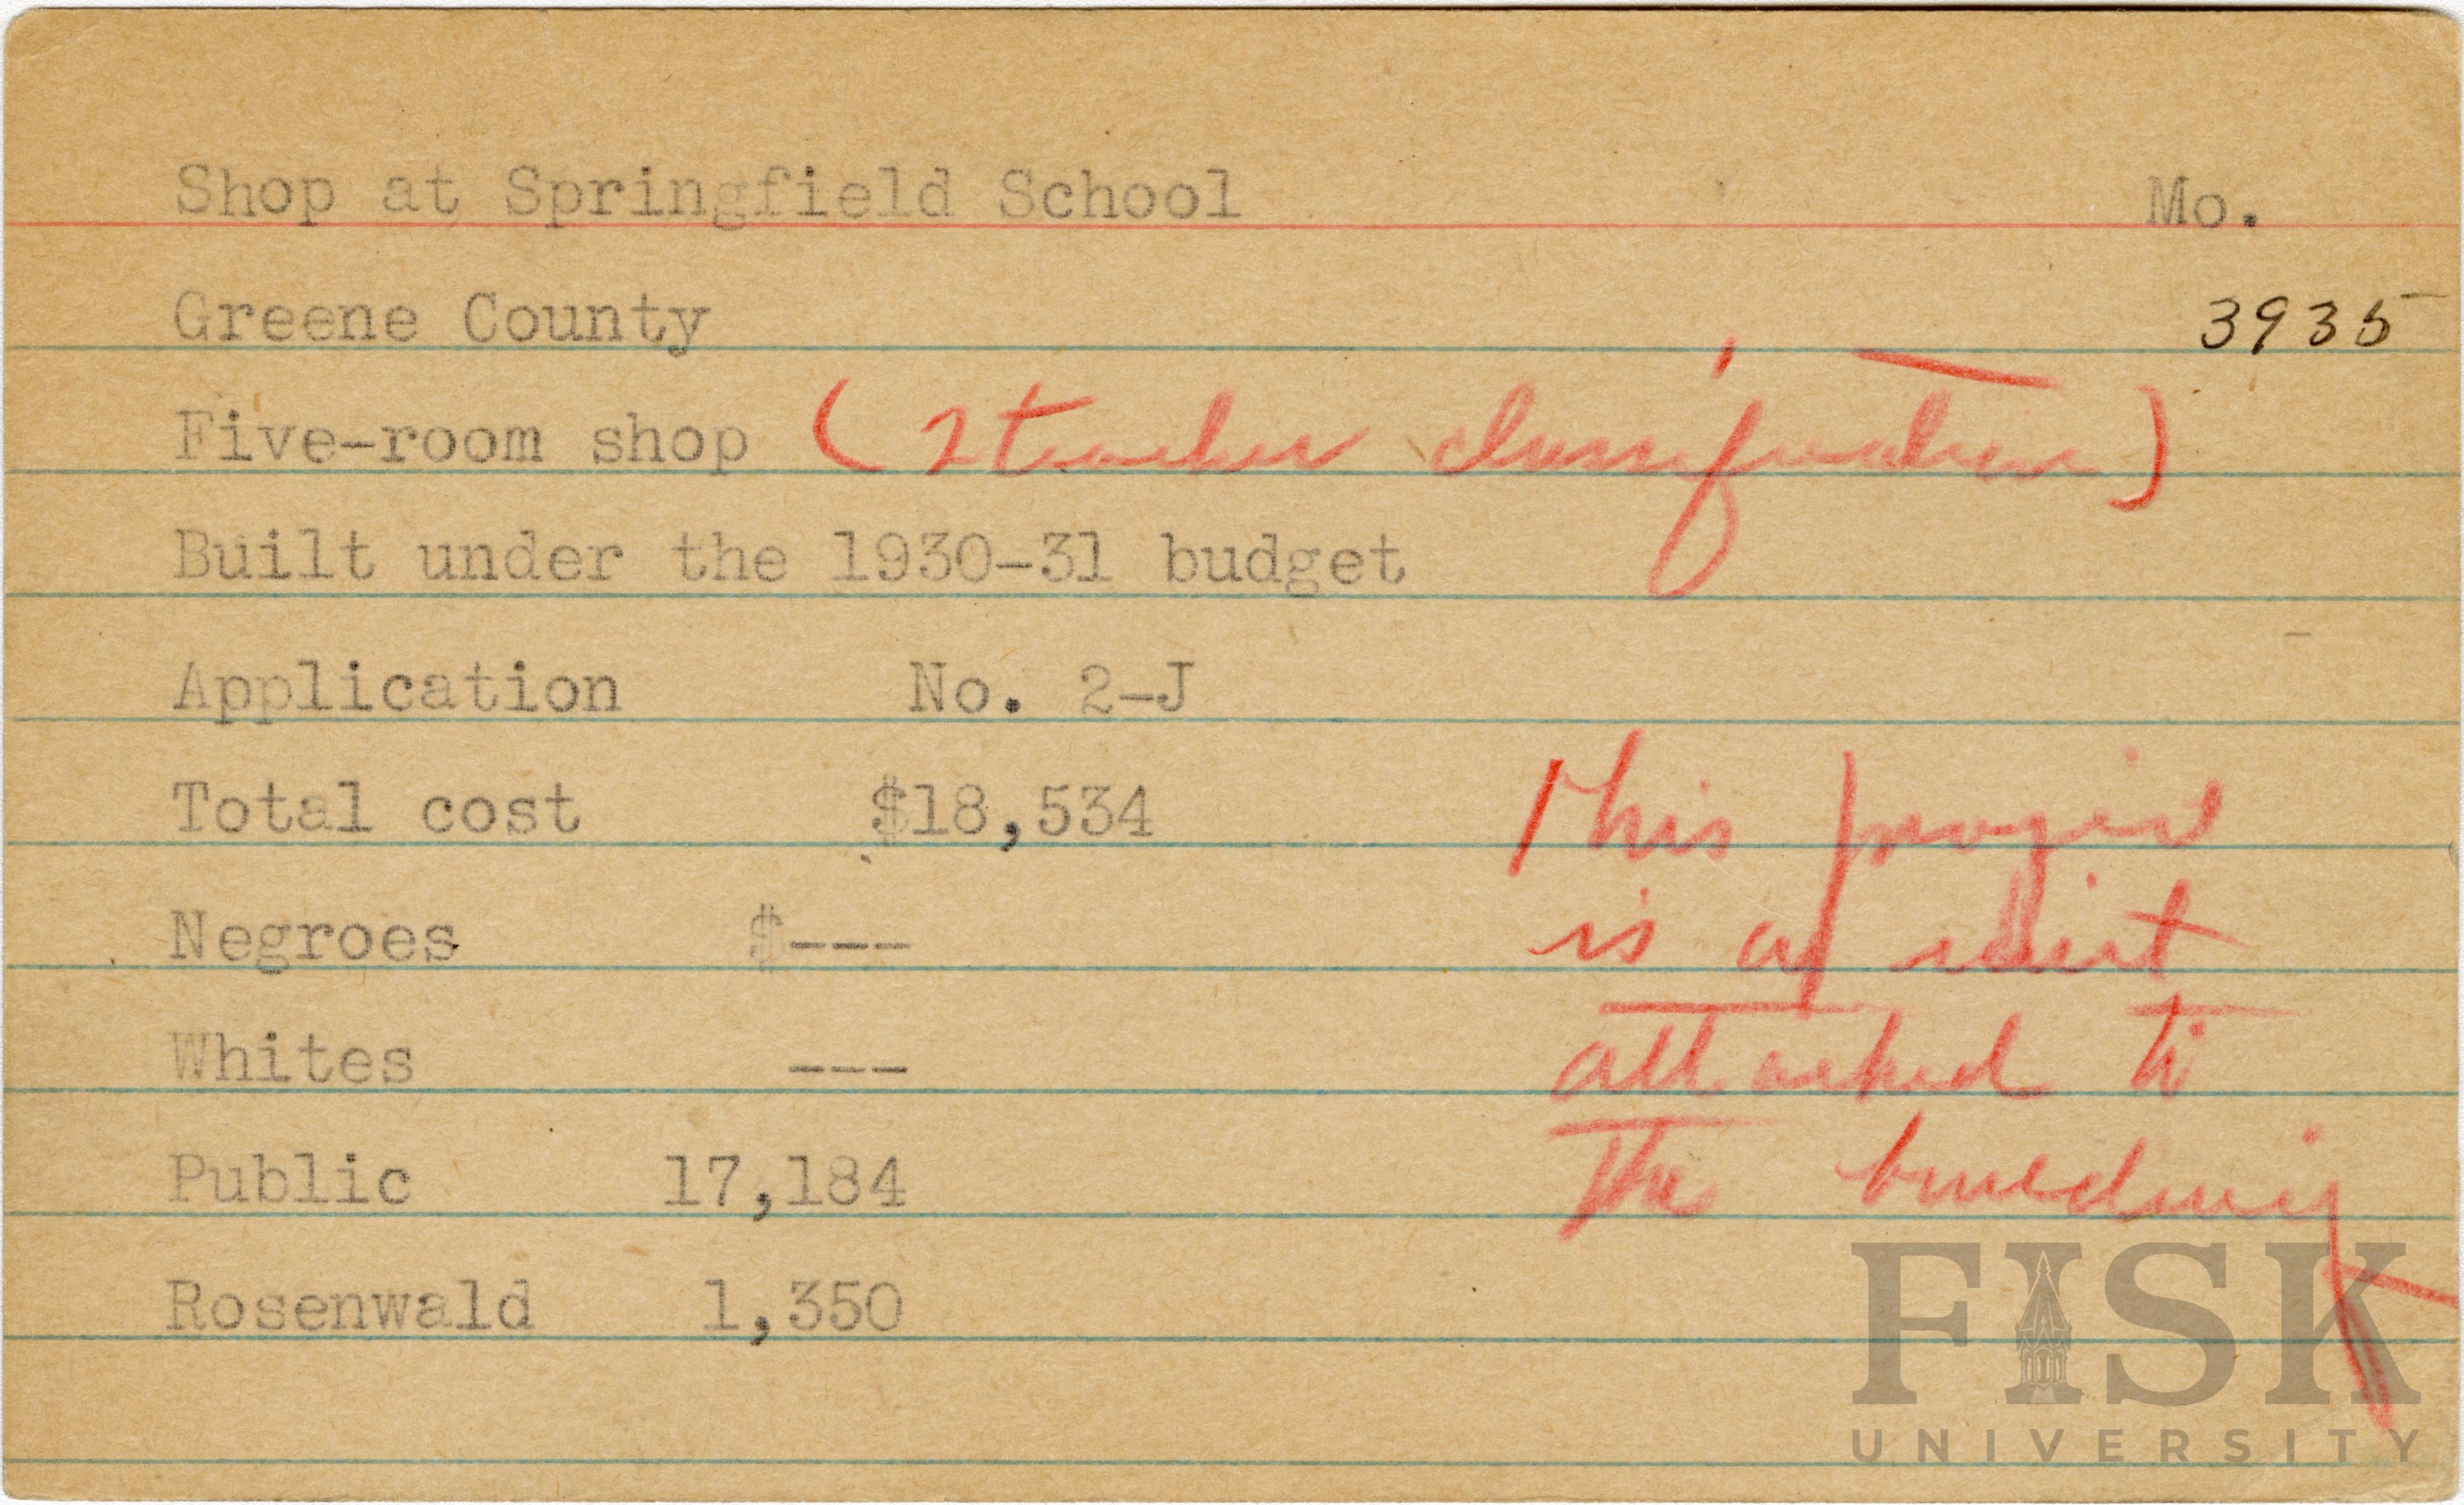 Shop at Springfield School Mo.
Greene County 3935
Five-room shop (2 teacher classification)
Built under the 1930-31 budget
Application No. 2-J
Total cost $18,534
This project
Negroes $---
is
Whites ---
attached to
Public 17,184
the building
Rosenwald 1,350
FISK
UNIVERSITY